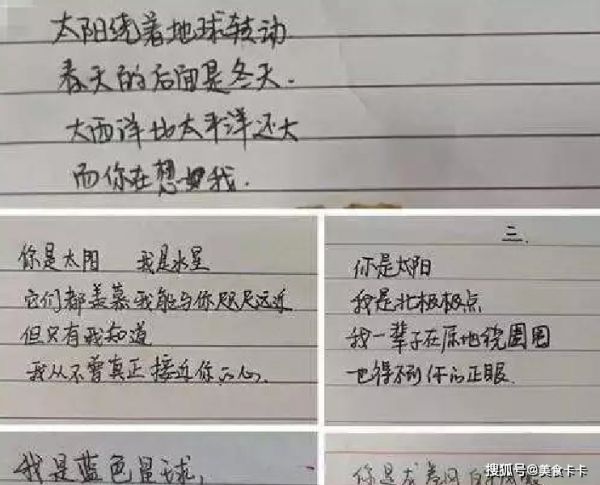 太阳绕着地球转动
春天的后面是冬天.
大西洋比太平洋还大
而你在想我.
你是太阳 我是水星
它们都羡慕我能与你咫尺远近
但只有我知道
我从不曾真正接近你的心.
三.
你是太阳
我是北极极点
我一辈子在原地绕圈圈
也得不到你的正眼.
我是蓝色星球,
你是龙卷风
搜狐号@美食卡卡